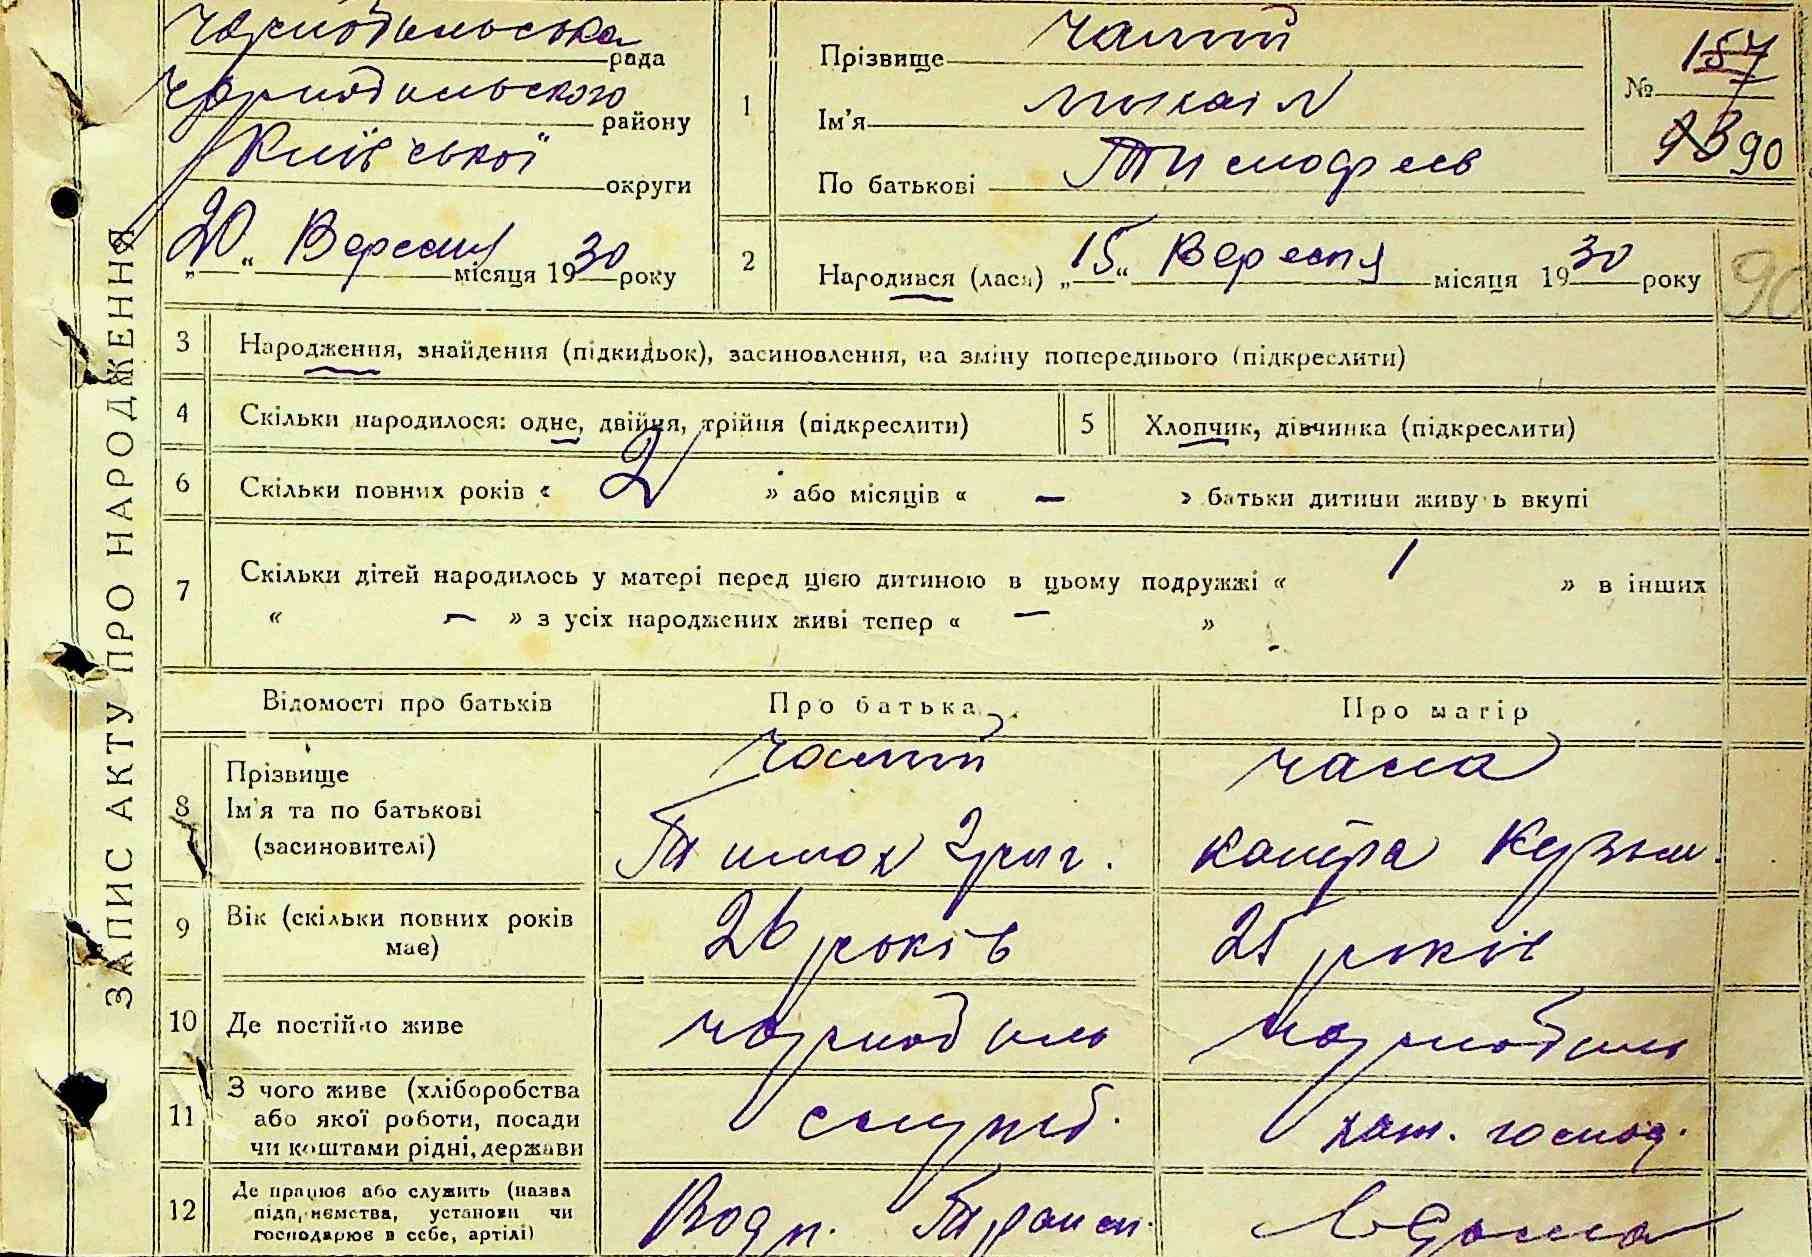 ЗАПИС АКТУ ПРО НАРОДЖЕННЯ
Чорнобильська рада
Чорнобильського району
Київської округи
„20“ Вересня місяця 1930 року
1
Прізвище Чалий
Ім'я Михаіл
По батькові Тимофеев
№ 157
93 90
2
Народився (лася) „15“ Вересня місяця 1930 року
90
3 Народження, знайдення (підкидьок), засиновлення, на зміну попереднього (підкреслити)
4 Скільки народилося: одне, двійня, трійня (підкреслити)
5 Хлопчик, дівчинка (підкреслити)
6 Скільки повних років « 2 » або місяців « – » батьки дитини живу ь вкупі
7 Скільки дітей народилось у матері перед цією дитиною в цьому подружжі « 1 » в інших
« – » з усіх народжених живі тепер « – »
Відомості про батьків Про батька Про матір
8 Прізвище
Ім'я та по батькові
(засиновителі)
Чалий
Тимох Григ.
Чала
Кузьм.
9 Вік (скільки повних років
має)
26 років
25 років
10 Де постійно живе Чорнобиль Чорнобиль
11 З чого живе (хліборобства
або якої роботи, посади
чи коштами рідні, держави
служб.
хат. господ.
12 Де працює або служить (назва
підприємства, установи чи
господарює в себе, артілі)
Водн. Трансп.
вдома